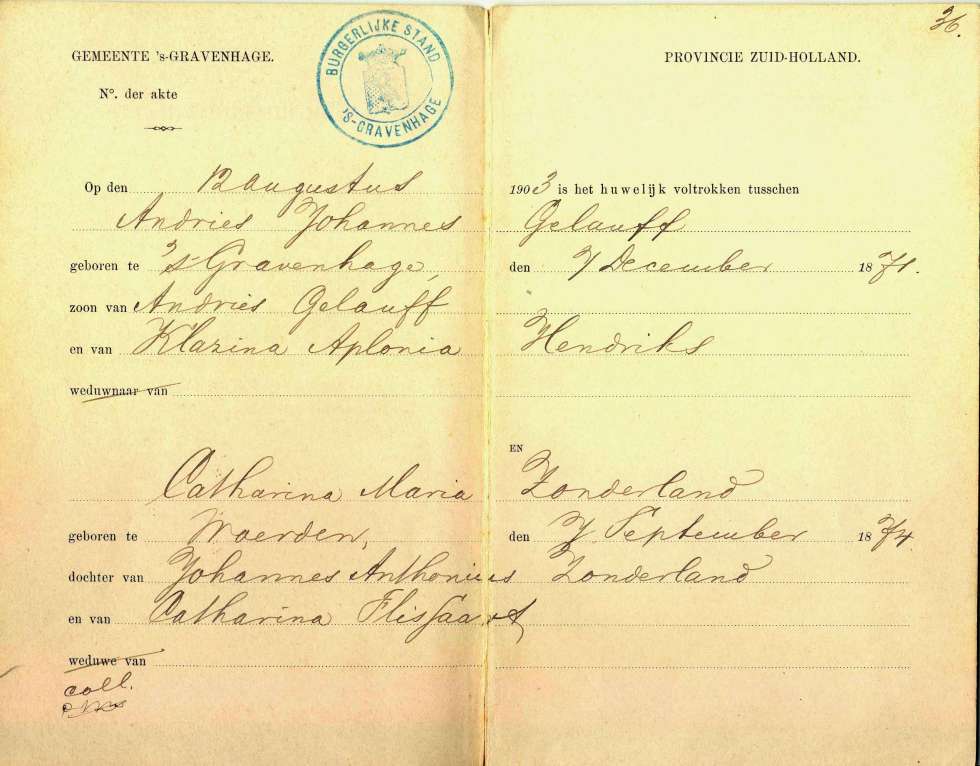 36.
GEMEENTE 's-GRAVENHAGE. PROVINCIE ZUID-HOLLAND.
BURGERLIJKE STAND
'S-GRAVENHAGE
N°. der akte
Op den 12 augustus 1903 is het huwelijk voltrokken tusschen
Andries Johannes Gelauff
geboren te 's-Gravenhage, den 7 December 1871.
zoon van Andries Gelauff
en van Klazina Aplonia Hendriks
weduwnaar van
EN
Catharina Maria Zonderland
geboren te Woerden, den 7 September 1874.
dochter van Johannes Anthonius Zonderland
en van Catharina Flissaart
weduwe van
coll.